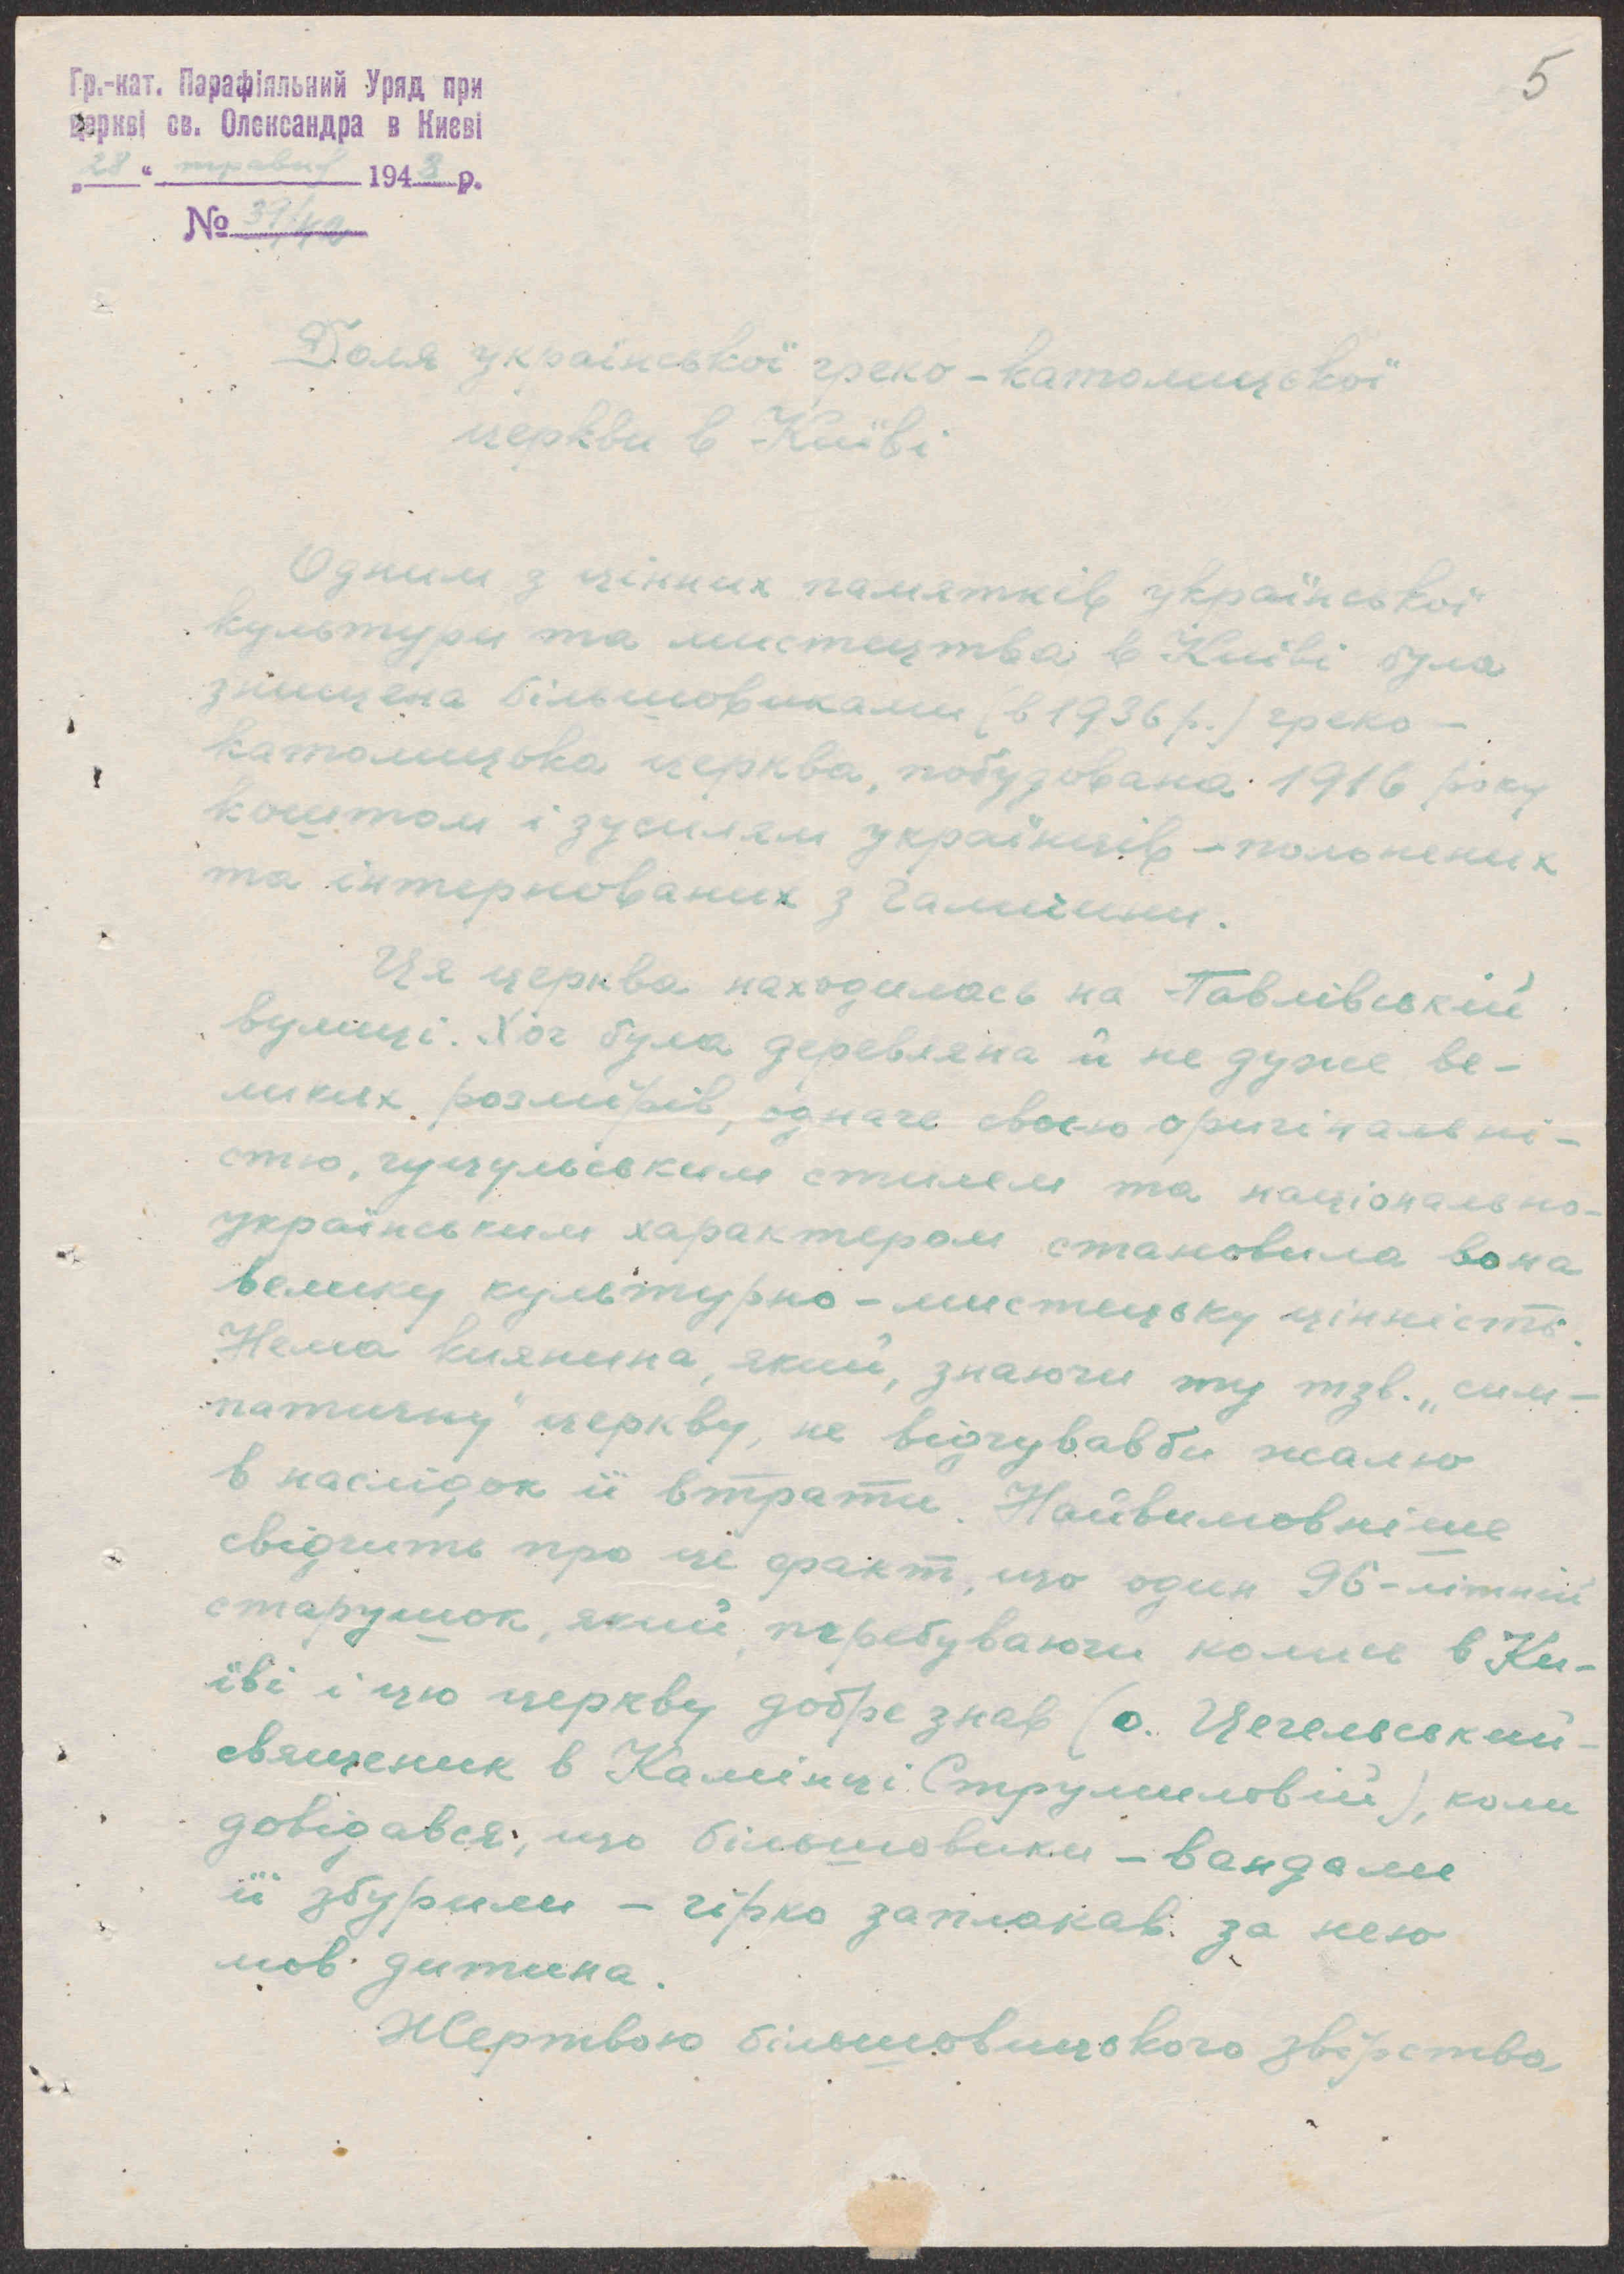 5
Гр.-кат. Парафіяльний Уряд при
церкві св. Олександра в Києві
„28" травня 1942 р.
№ 39/42
Доля української греко-католицької
церкви в Київі
Одним з цінних памятків української
культури та мистецтва в Київі була
знищена більшовиками (в 1936 р.) греко-
католицька церква, побудована 1916 року
коштом і зусилям українців - польнених
та інтернованих з Галичини.
Ця церква находилась на Павлівській
вулиці. Хоч була деревляна й не дуже ве-
ликих розмірів, одначе своєю оригінальні-
стю, гуцульським стилем та національно-
українським характером становила вона
велику культурно-мистецьку цінність.
Нема киянина, який, знаючи ту тзв. „сим-
патичну" церкву, не відчувавби жалю
в наслідок її втрати. Найвимовніше
свідчить про це факт, що один 96-літній
старушок, який, перебуваючи колись в Ки-
їві і цю церкву добре знав (о. Цегельський-
священик в Камінці Струмиловій), коли
довідався, що більшовики-вандали
її збурили - гірко заплакав за нею
мов дитина.
Жертвою більшовицького звірства